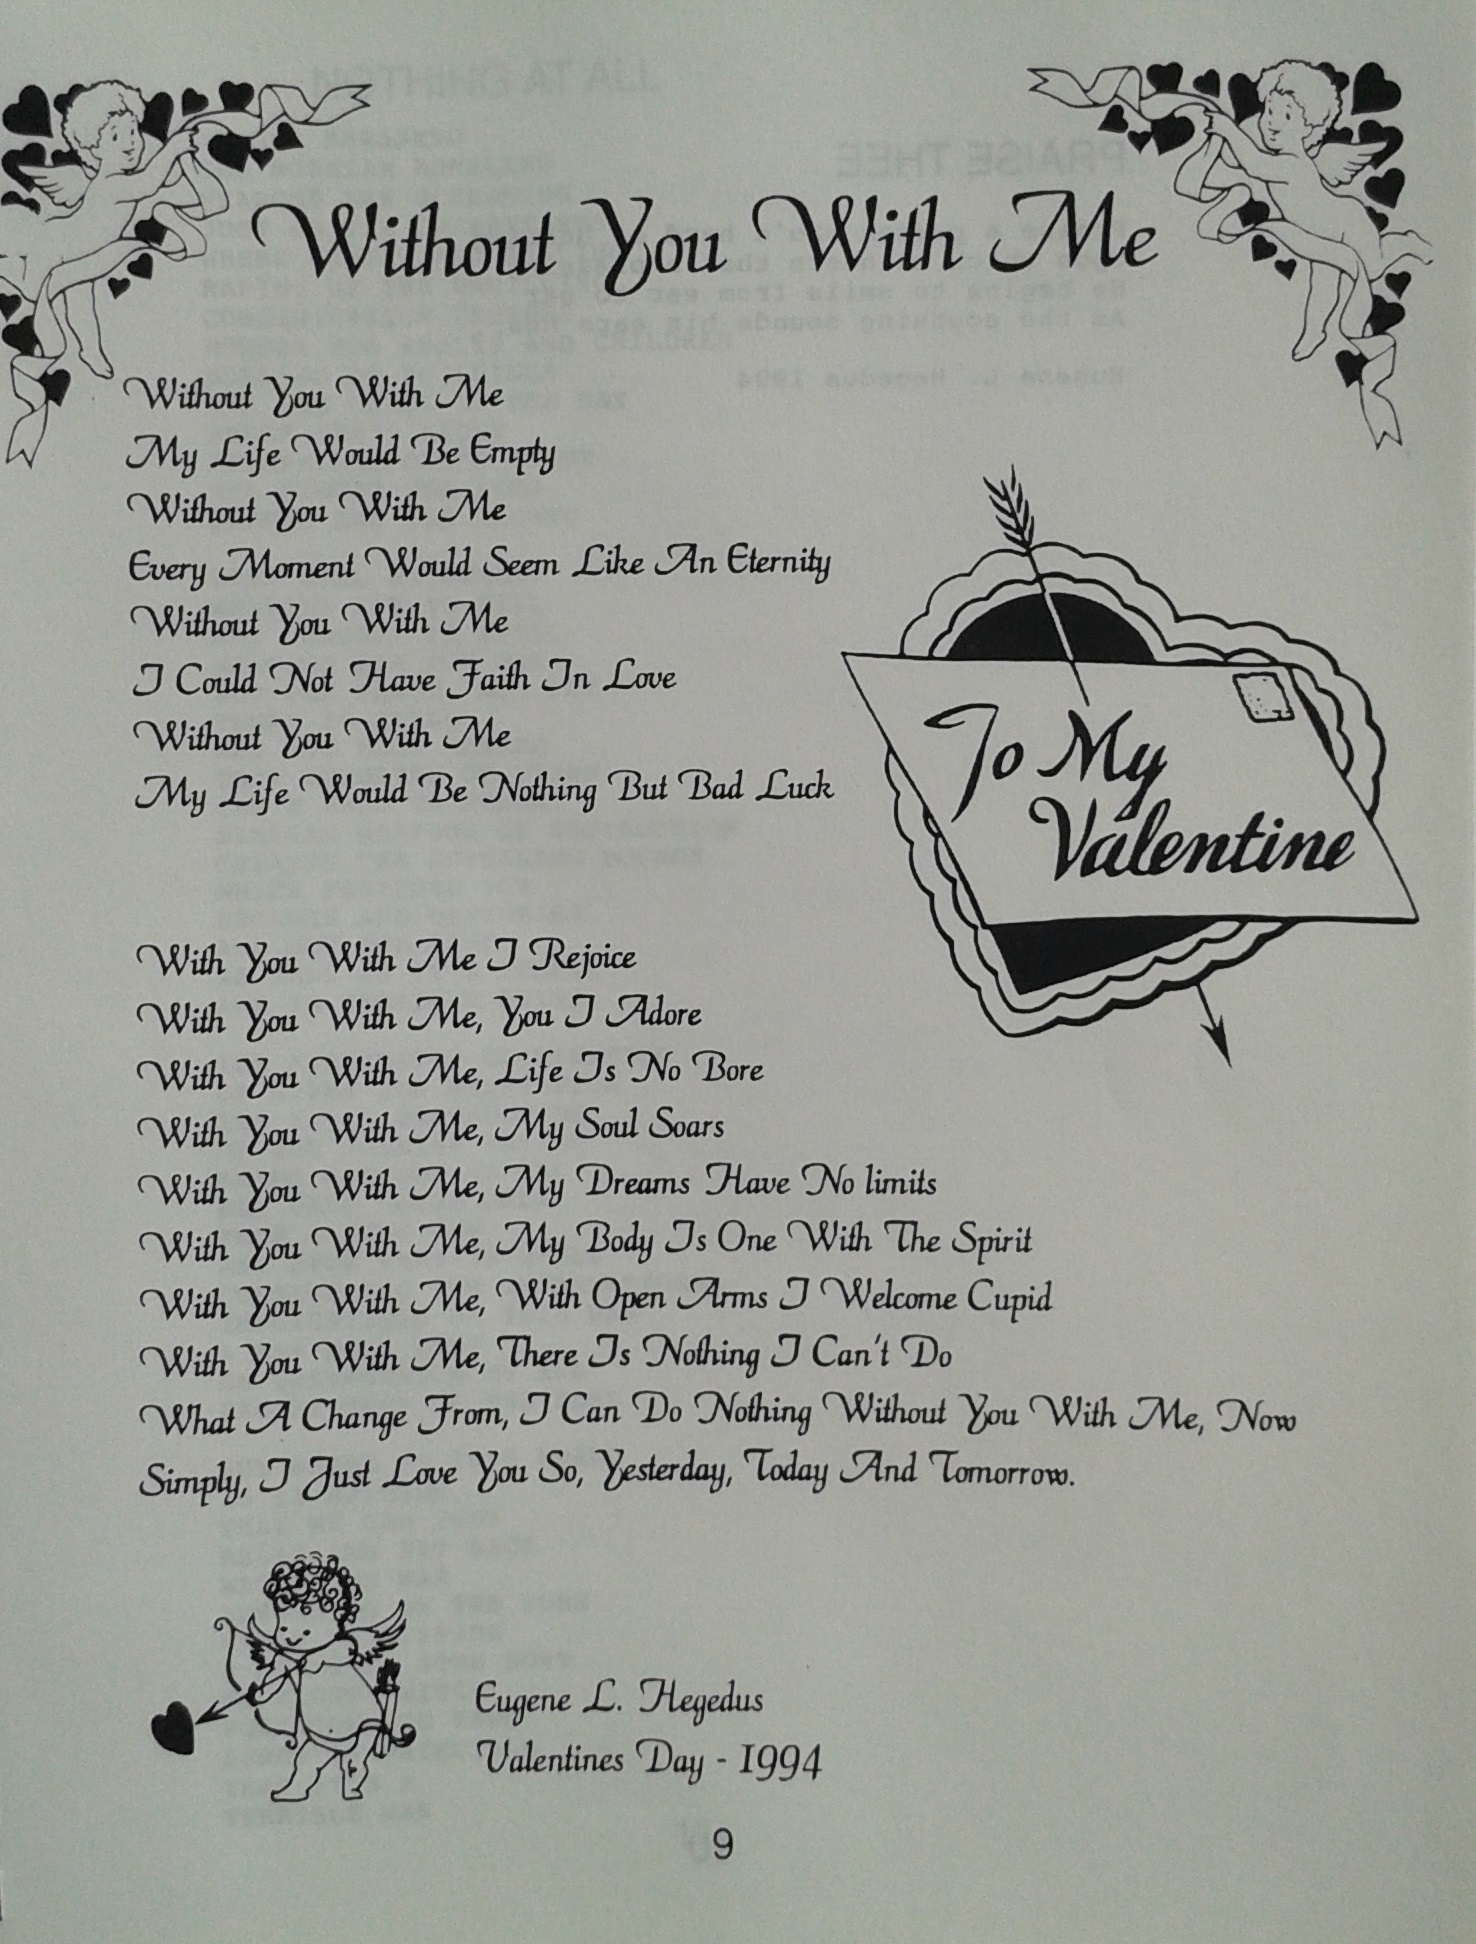 Without You With Me
Without You With Me
My Life Would Be Empty
Without You With Me
Every Moment Would Seem Like An Eternity
Without You With Me
I Could Not Have Faith In Love
Without You With Me
My Life Would Be Nothing But Bad Luck
To My
Valentine
With You With Me I Rejoice
With You With Me, You I Adore
With You With Me, Life Is No Bore
With You With Me, My Soul Soars
With You With Me, My Dreams Have No limits
With You With Me, My Body Is One With The Spirit
With You With Me, With Open Arms I Welcome Cupid
With You With Me, There Is Nothing I Can't Do
What A Change From, I Can Do Nothing Without You With Me, Now
Simply, I Just Love You So, Yesterday, Today And Tomorrow.
Eugene L. Hegedus
Valentines Day - 1994
9